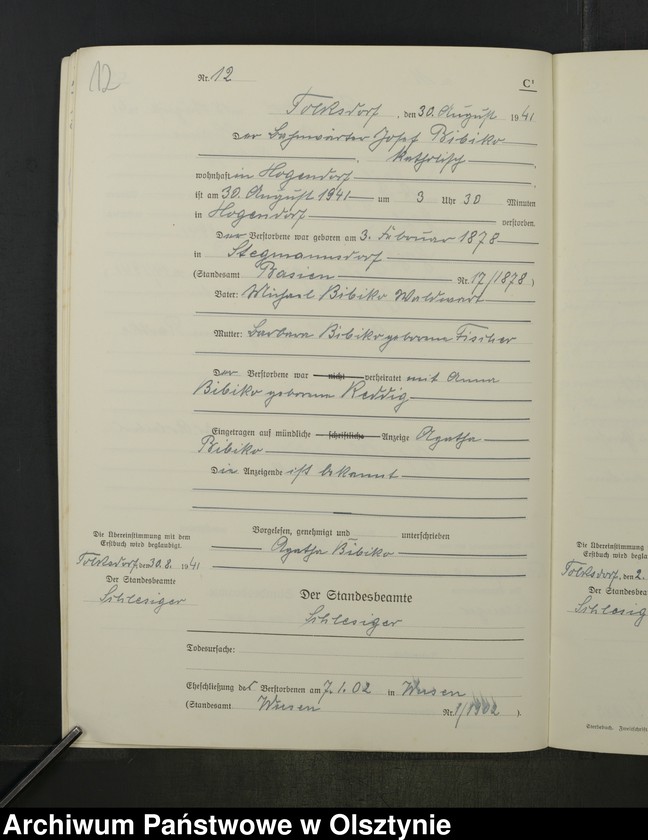 12
Nr. 12
C¹
Tolksdorf, den 30. August 1941
Der Bahnwärter Josef Bibiko
, katholisch,
wohnhaft in Hogendorf
ist am 30. August 1941 um 3 Uhr 30 Minuten
in Hogendorf verstorben.
Der Verstorbene war geboren am 3. Februar 1878
in Stegmannsdorf
(Standesamt Basien Nr. 17/1878)
Vater: Michael Bibiko Waldwart
Mutter: Barbara Bibiko geborene Fischer
Der Verstorbene war nicht verheiratet mit Anna
Bibiko geborene Reddig
Eingetragen auf mündliche schriftliche Anzeige Agatha
Bibiko
Die Anzeigende ist bekannt
Vorgelesen, genehmigt und unterschrieben
Agatha Bibiko
Die Übereinstimmung mit dem
Erstbuch wird beglaubigt.
Tolksdorf, den 30.8. 1941
Der Standesbeamte
Schlesiger
Der Standesbeamte
Schlesiger
Todesursache:
Eheschließung des Verstorbenen am 7.1.02 in Wusen
(Standesamt Wusen Nr. 1/1902).
Die Übereinstimmung
Erstbuch wird be
Tolksdorf, den 2.
Der Standesbea
Schlesig
Archiwum Państwowe w Olsztynie